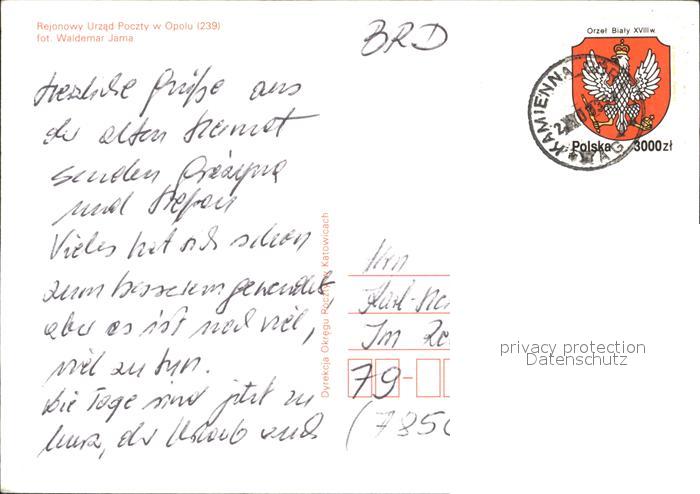 Rejonowy Urząd Poczty w Opolu (239)
fot. Waldemar Jama
BRD
Orzeł Biały XVIII w.
KAMIENNA
Polska 3000zł
Herzliche Grüße aus
der alten Heimat
senden Grażyna
und Stefan
Vieles hat sich schon
zum besseren gewendet,
aber es ist noch viel,
viel zu tun.
Die Tage sind jetzt zu
kurz, der Urlaub auch
Dyrekcja Okręgu Poczty w Katowicach
Hrn
Karl-He
Im Re
79-
(785
privacy protection
Datenschutz